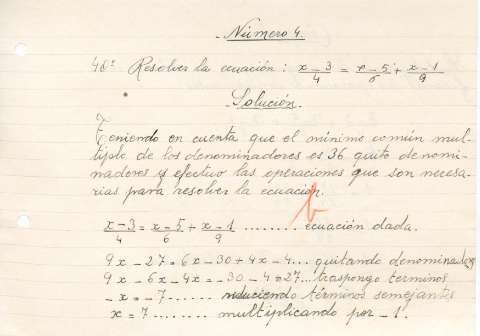 Número 4.
46ª Resolver la ecuación: x-3/4 = x-5/6 + x-1/9
Solución.
Teniendo en cuenta que el mínimo común mul-
tiplo de los denominadores es 36 quito denomi-
nadores y efectuo las operaciones que son necesa-
rias para resolver la ecuación.
b
x-3/4 = x-5/6 + x-1/9 ........ ecuación dada.
9x - 27 = 6x - 30 + 4x - 4 ... quitando denominadores
9x - 6x - 4x = -30 - 4 = 27 ... traspongo terminos
-x = -7 ...... reduciendo términos semejantes
x = 7 ........ multiplicando por -1.